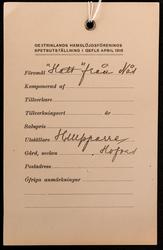 GESTRIKLANDS HEMSLÖJDSFÖRENINGS
SPETSUTSTÄLLNING I GEFLE APRIL 1910
Föremål "Hatt" från Nås
Komponerad af
Tillverkare
Tillverkningsort år
Saluspris
Utställare Hillpparre
Gård, socken Hofors
Postadress
Öfriga anmärkningar